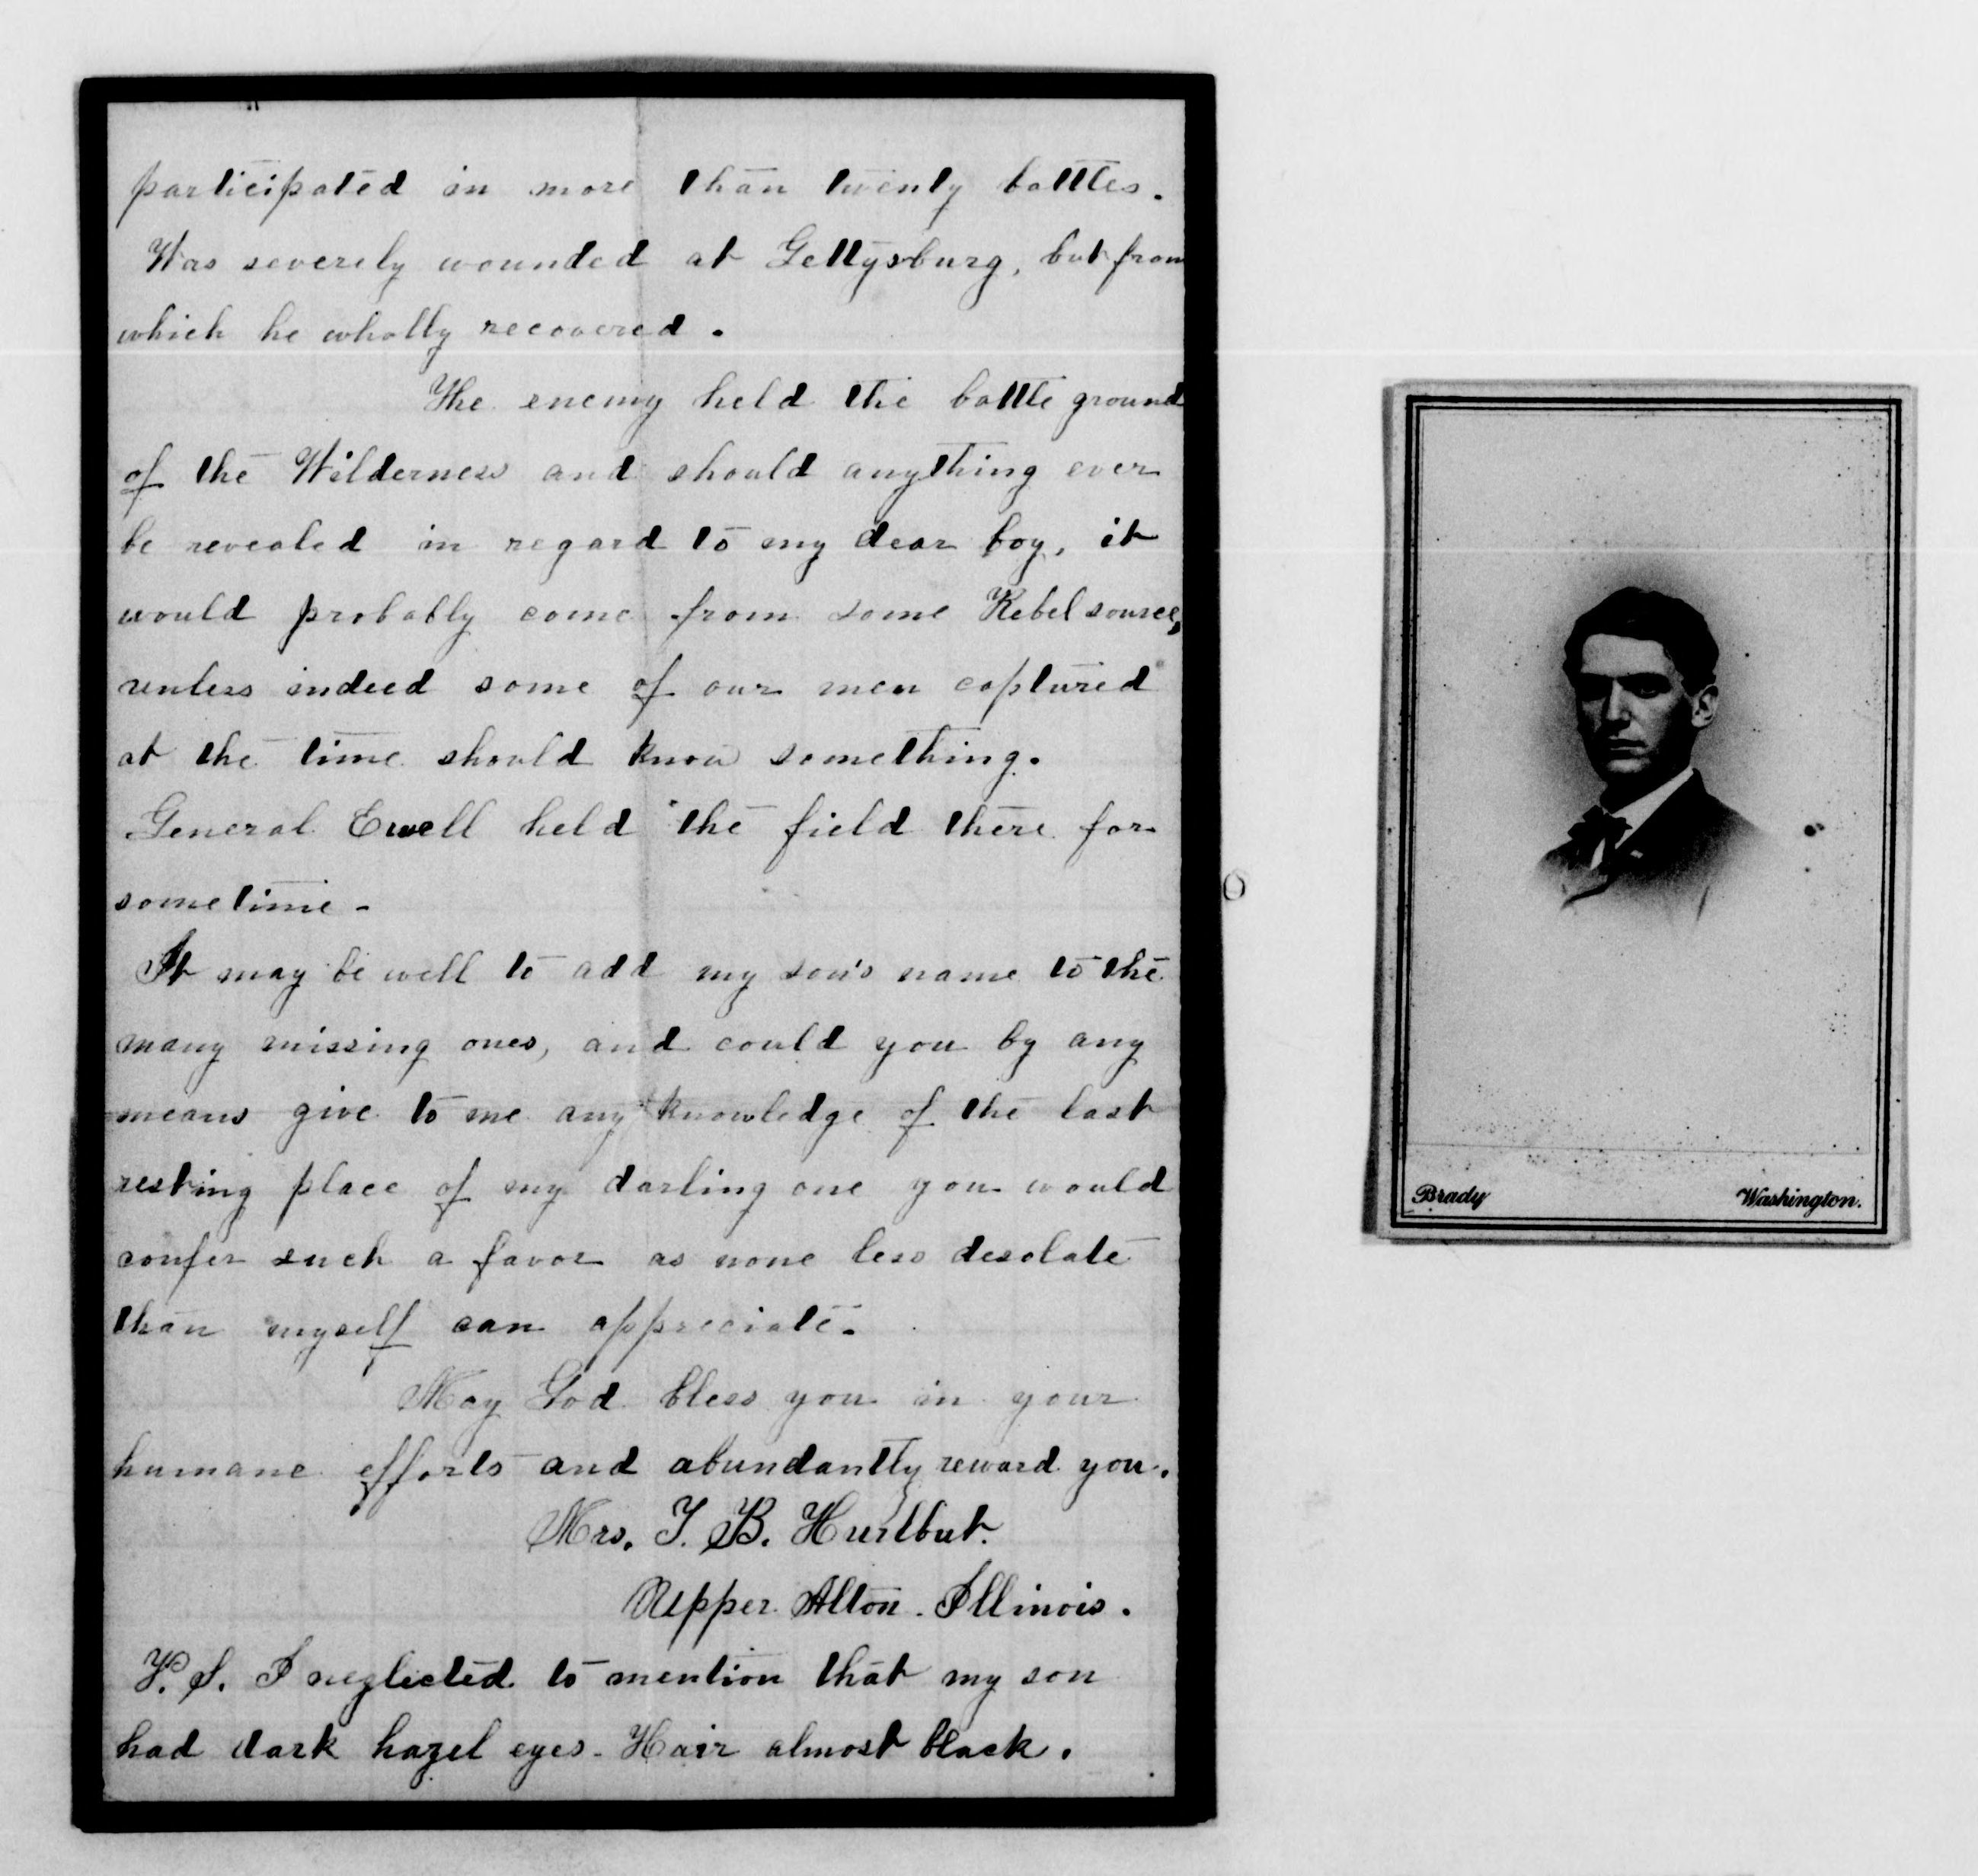 participated in more than twenty battles.
Was severely wounded at Gettysburg, but from
which he wholly recovered.
The enemy held the battle ground
of the Wilderness and should anything ever
be revealed in regard to my dear boy, it
would probably come from some Rebel source,
unless indeed some of our men captured
at the time should know something.
General Ewell held the field there for
sometime -
It may be well to add my son's name to the
many missing ones, and could you by any
means give to me any knowledge of the last
resting place of my darling one you would
confer such a favor as none less desolate
than myself can appreciate.
May God bless you in your
humane efforts and abundantly reward you.
Mrs. T. B. Hurlbut.
Upper Alton. Illinois.
P. S. I neglected to mention that my son
had dark hazel eyes - Hair almost black.
Brady Washington.